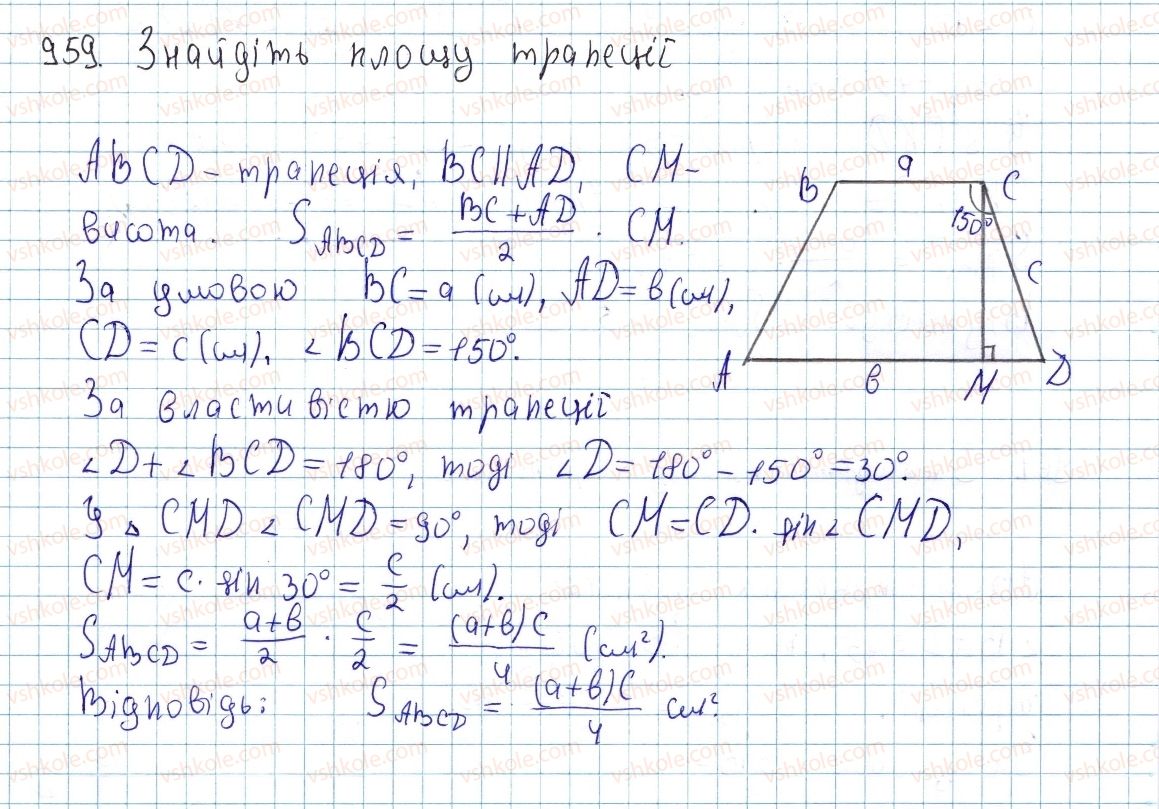 959. Знайдіть площу трапеції
ABCD – трапеція, BC || AD, CM –
висота. S_ABCD = (BC + AD)/2 · CM.
За умовою BC = a (см), AD = b (см),
CD = c (см), ∠BCD = 150°.
За властивістю трапеції
∠D + ∠BCD = 180°, тоді ∠D = 180° – 150° = 30°.
У △ CMD ∠CMD = 90°, тоді CM = CD · sin∠CMD,
CM = c · sin 30° = c/2 (см).
S_ABCD = (a+b)/2 · c/2 = (a+b)c/4 (см²).
Відповідь: S_ABCD = (a+b)c/4 см².
B a C
150°
c
A b M D
vshkole.com